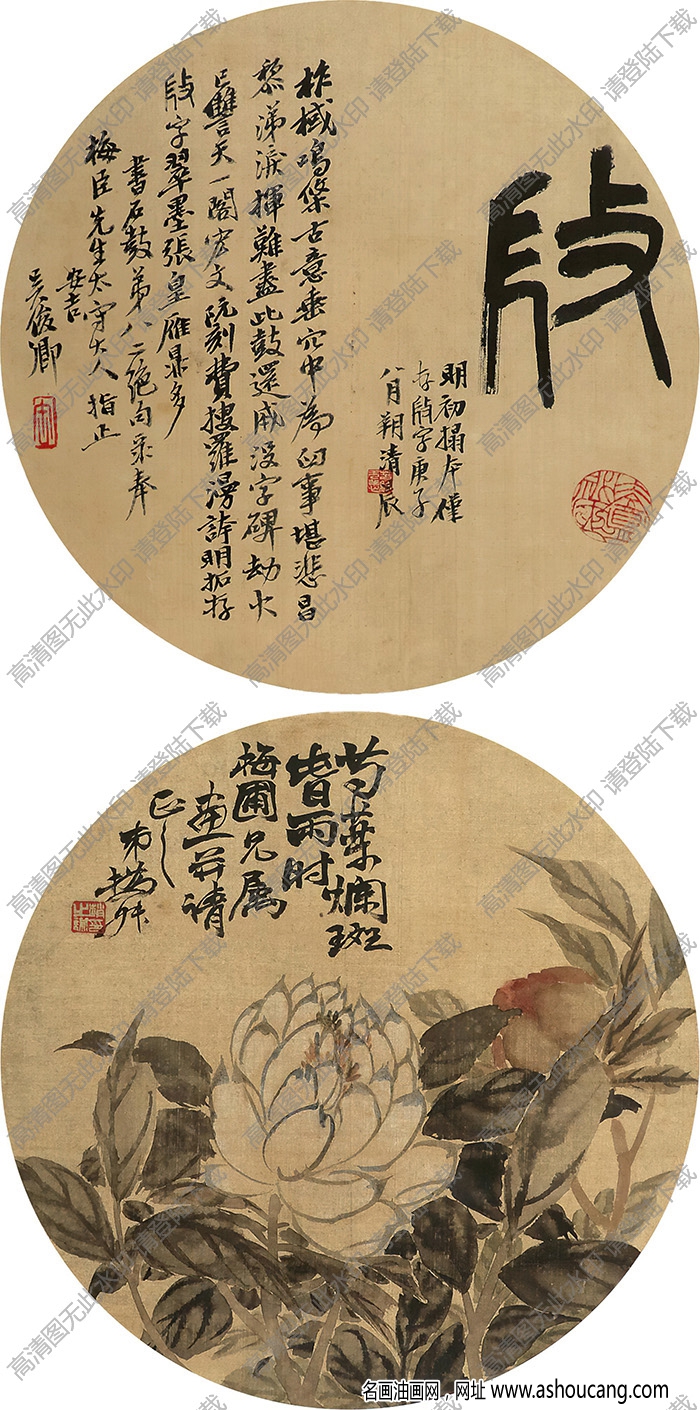 明初搨本僅
存㲃字庚子
八月朔清辰
柞棫鳴條古意垂穴中為臼事堪悲昌
黎涕淚揮難盡此鼓還成沒字碑劫火
已讐天一閣宏文阮刻費搜羅漫誇明拓存
㲃字翠墨張皇雁鼎多
書石鼓弟八二絕句录奉
梅臣先生太守大人指正
安吉
吳俊卿
芍葉爛斑
昔雨时
梅圃兄属
画并请
正之
高清图无此水印 请登陆下载
名画油画网，网址 www.ashoucang.com